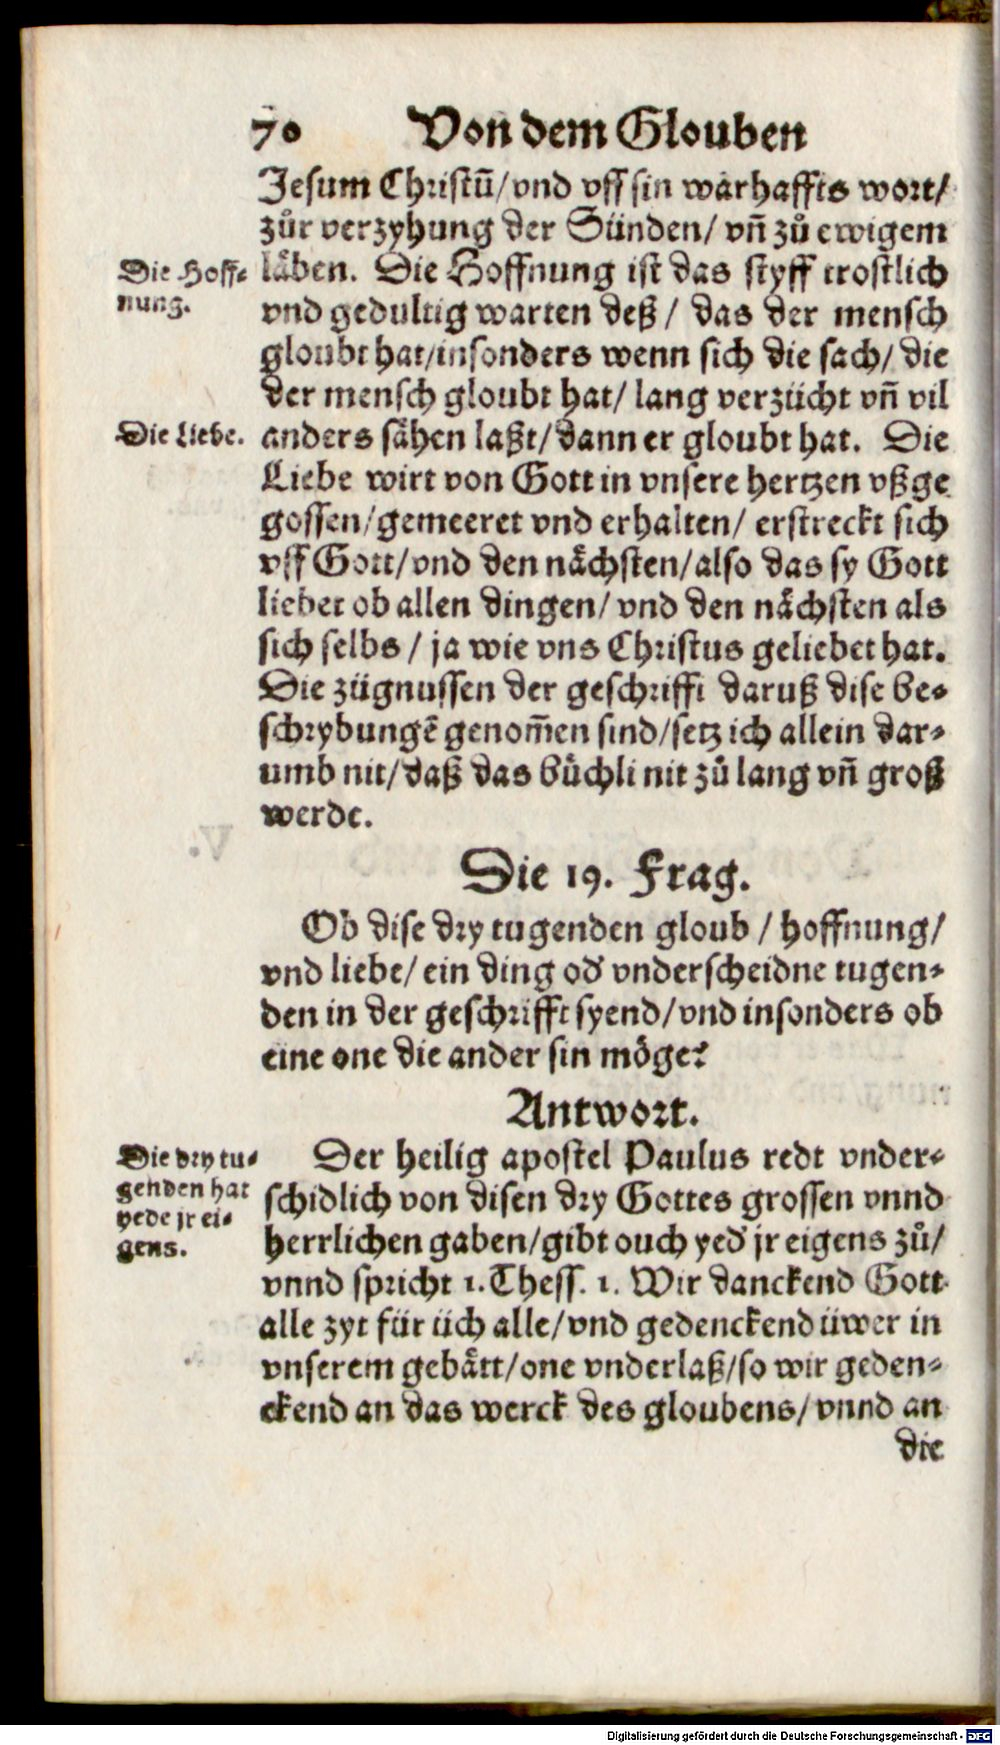 70 Von dem Glouben
Jesum Christū/vnd vff sin warhaffts wort/
zůr verzyhung der Sünden/ vñ zů ewigem
Die Hoff-
nung.
läben. Die Hoffnung ist das styff trostlich
vnd gedultig warten deß/ das der mensch
gloubt hat/insonders wenn sich die sach/ die
der mensch gloubt hat/ lang verzücht vñ vil
Die Liebe.
anders sähen laßt/dann er gloubt hat. Die
Liebe wirt von Gott in vnsere hertzen vßge
gossen/gemeeret vnd erhalten/ erstreckt sich
vff Gott/vnd den nächsten/also das sy Gott
liebet ob allen dingen/ vnd den nächsten als
sich selbs / ja wie vns Christus geliebet hat.
Die zügnussen der geschrifft daruß dise be-
schrybungē genom̄en sind/setz ich allein dar-
umb nit/daß das büchli nit zů lang vñ groß
werde.
Die 19. Frag.
Ob dise dry tugenden gloub / hoffnung/
vnd liebe/ ein ding od' vnderscheidne tugen-
den in der geschrifft syend/vnd insonders ob
eine one die ander sin möge?
Antwort.
Die dry tu-
genden hat
yede jr ei-
gens.
Der heilig apostel Paulus redt vnder-
schidlich von disen dry Gottes grossen vnnd
herrlichen gaben/gibt ouch yed' jr eigens zů/
vnnd spricht 1. Thess. 1. Wir danckend Gott
alle zyt für üch alle/vnd gedenckend üwer in
vnserem gebätt/one vnderlaß/so wir geden-
ckend an das werck des gloubens/ vnnd an
die
Digitalisierung gefördert durch die Deutsche Forschungsgemeinschaft - DFG